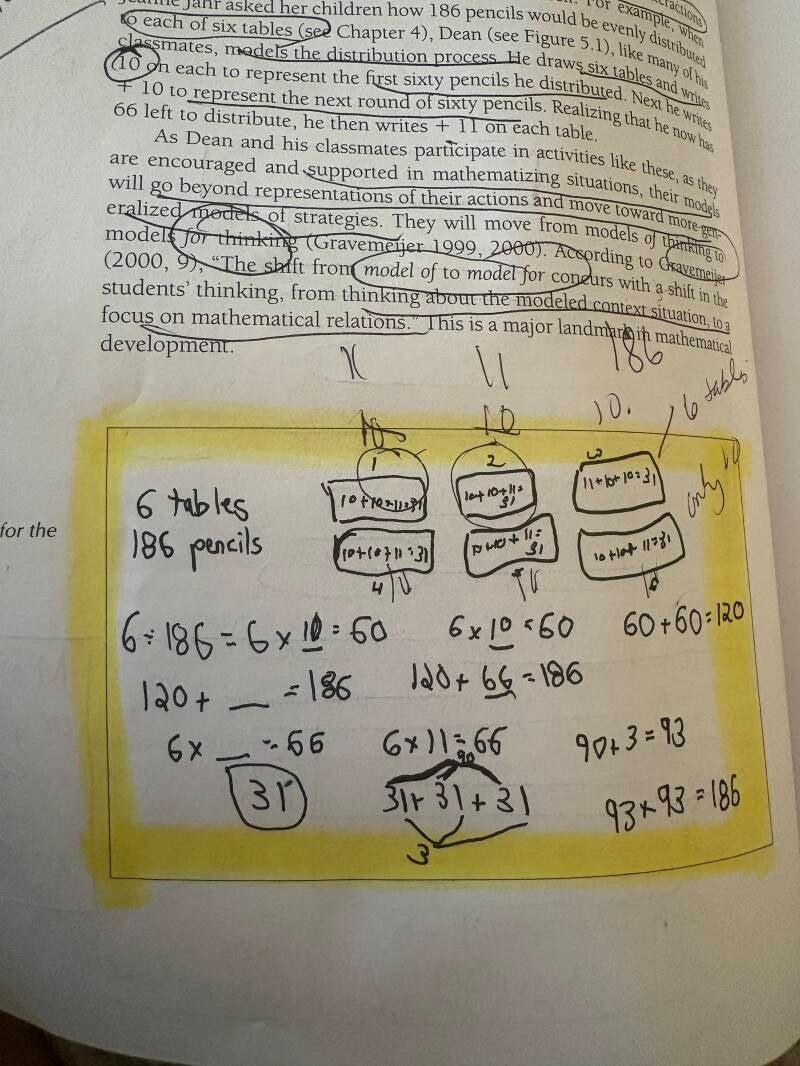 Jeanne Jahr asked her children how 186 pencils would be evenly distributed
to each of six tables (see Chapter 4), Dean (see Figure 5.1), like many of his
classmates, models the distribution process. He draws six tables and writes
10 on each to represent the first sixty pencils he distributed. Next he writes
+ 10 to represent the next round of sixty pencils. Realizing that he now has
66 left to distribute, he then writes + 11 on each table.
As Dean and his classmates participate in activities like these, as they
are encouraged and supported in mathematizing situations, their models
will go beyond representations of their actions and move toward more gen-
eralized models of strategies. They will move from models of thinking to
models for thinking (Gravemeijer 1999, 2000). According to Gravemeijer
(2000, 9), “The shift from model of to model for concurs with a shift in the
students’ thinking, from thinking about the modeled context situation, to a
focus on mathematical relations.” This is a major landmark in mathematical
development.
11 186
10 10 10. 6 tables
only 10
for the
1 2 3
6 tables
186 pencils
10+10+11=31 10+10+11=31 11+10+10=31
10+10+11=31 10+10+11=31 10+10+11=31
4
6÷186=6×10=60 6×10=60 60+60=120
120+ __ =186 120+66=186
6× __ =66 6×11=66 90+3=93
90
31 31+31+31 93+93=186
3